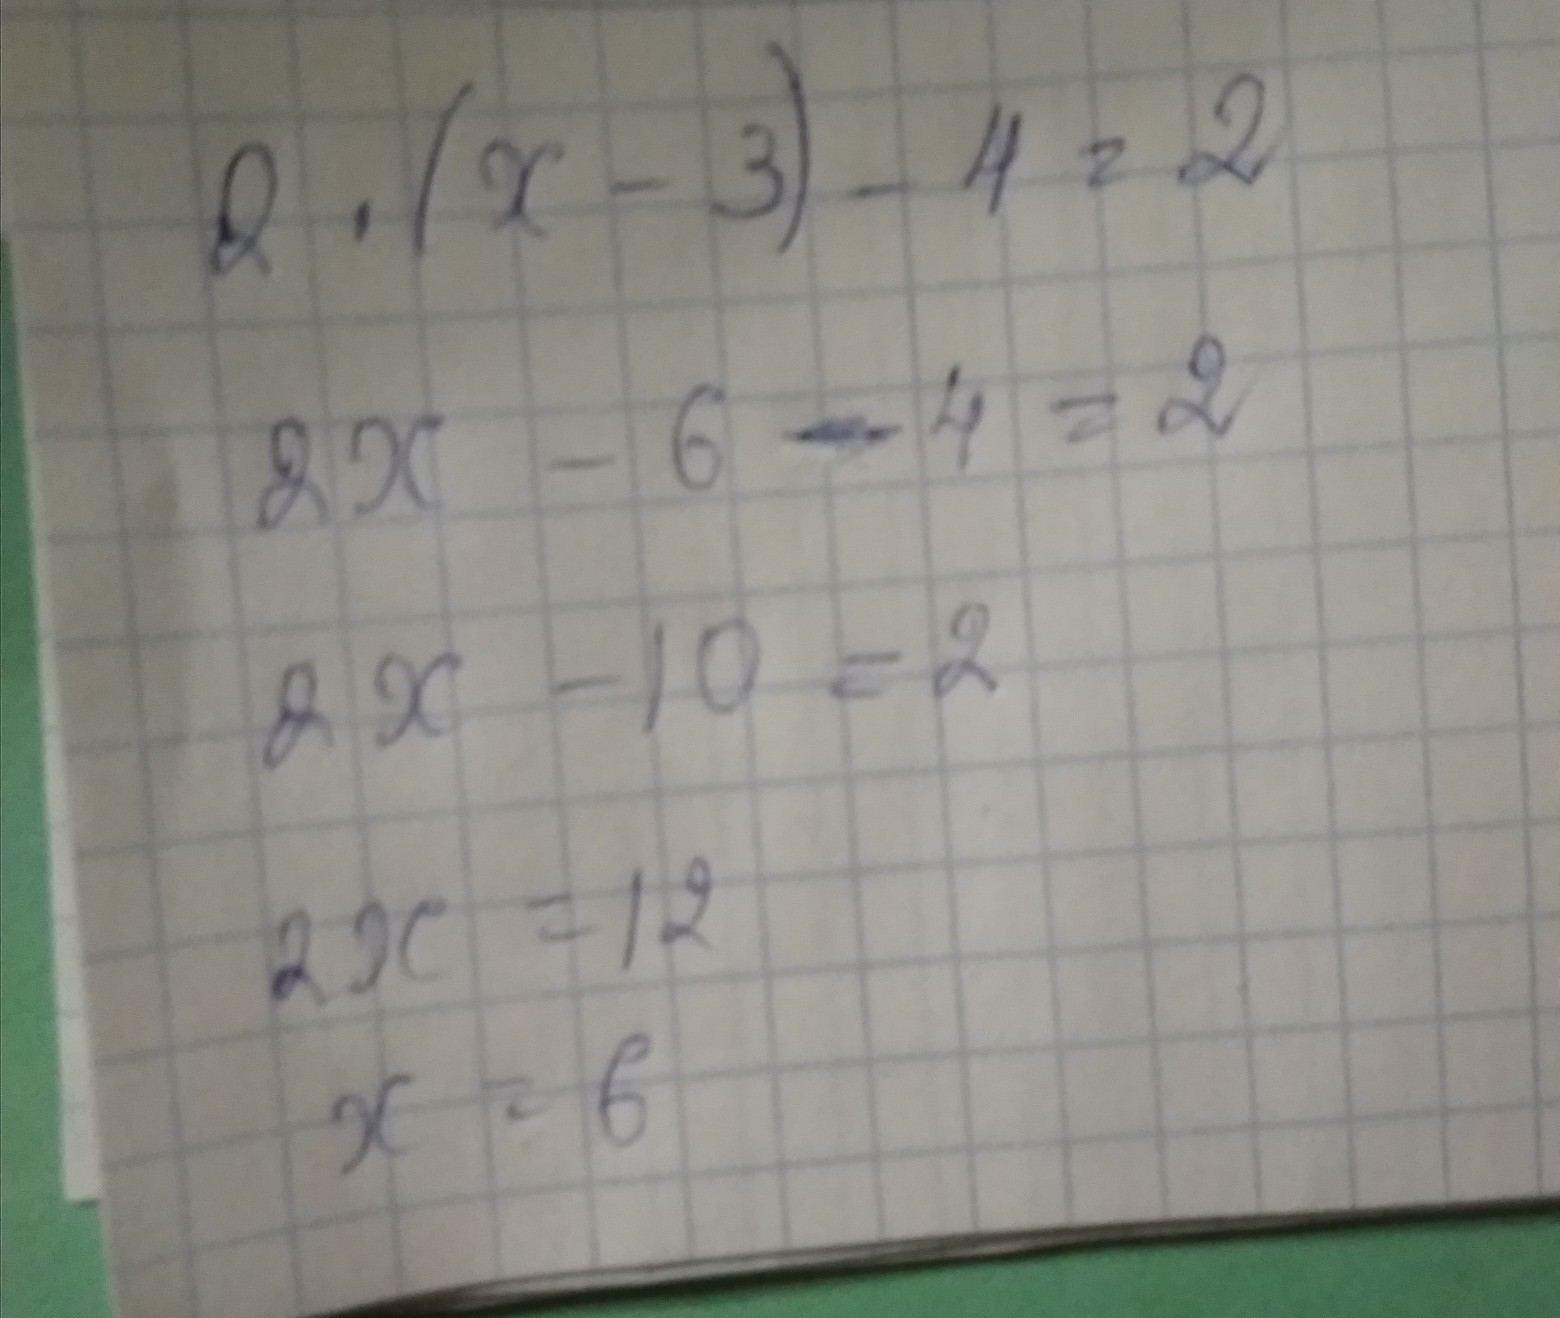 2 · (x - 3) - 4 = 2
2x - 6 - 4 = 2
2x - 10 = 2
2x = 12
x = 6